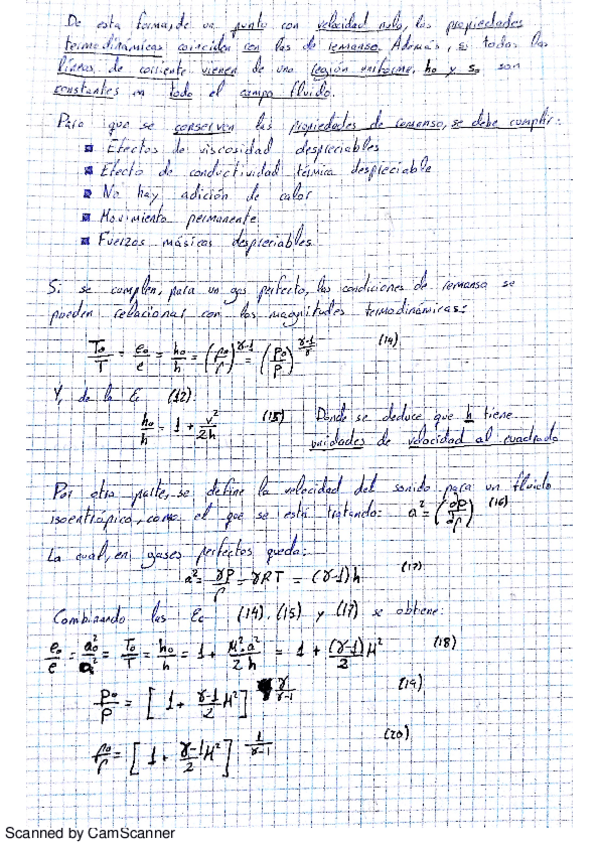 De esta forma, de un punto con velocidad nula, las propiedades
termodinámicas coinciden con las de remanso. Además, si todas las
líneas de corriente vienen de una región uniforme, h₀ y s₀ son
constantes en todo el campo fluido.
Para que se conserven las propiedades de remanso, se debe cumplir:
■ Efectos de viscosidad despreciables
■ Efecto de conductividad térmica despreciable
■ No hay adición de calor
■ Movimiento permanente
■ Fuerzas másicas despreciables
Si se cumplen, para un gas perfecto, las condiciones de remanso se
pueden relacionar con las magnitudes termodinámicas:
T₀/T = e₀/e = h₀/h = (ρ₀/ρ)^(γ-1) = (P₀/P)^((γ-1)/γ) (14)
Y, de la Ec (12):
h₀/h = 1 + v²/2h (15) Donde se deduce que h tiene
unidades de velocidad al cuadrado
Por otra parte, se define la velocidad del sonido para un fluido
isoentrópico, como el que se está tratando: a² = (∂P/∂ρ) (16)
La cual, en gases perfectos queda:
a² = γP/ρ = γRT = (γ-1)h (17)
Combinando las Ec (14), (15) y (17) se obtiene:
e₀/e = a₀²/a² = T₀/T = h₀/h = 1 + M²·a²/2h = 1 + (γ-1)/2 M² (18)
P₀/P = [1 + γ-1/2 M²]^(γ/(γ-1)) (19)
ρ₀/ρ = [1 + γ-1/2 M²]^(1/(γ-1)) (20)
Scanned by CamScanner